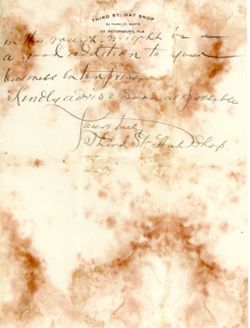 THIRD ST. HAT SHOP
ST. PETERSBURG, FLA.
in the
a good addition to your
business enterprise.
Kindly advise soon as possible
Yours truly
Third St Hat Shop.